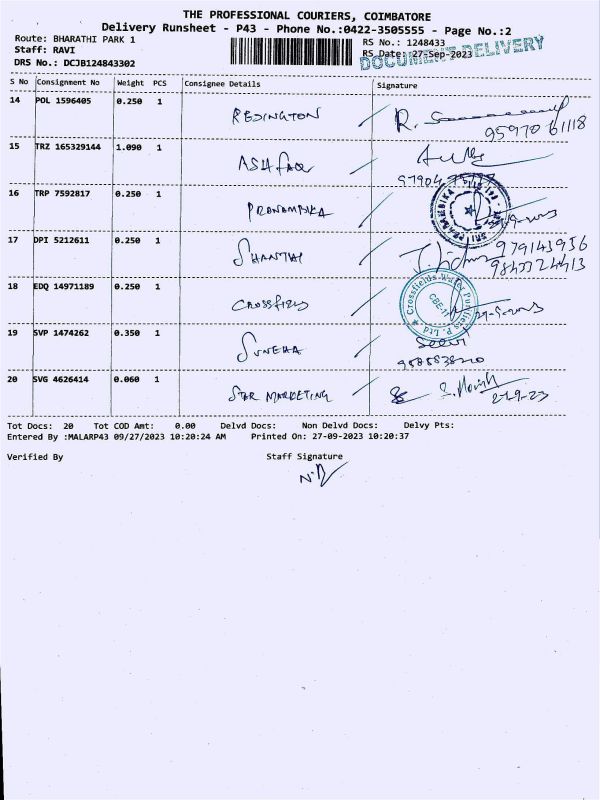 THE PROFESSIONAL COURIERS, COIMBATORE
Delivery Runsheet - P43 - Phone No.:0422-3505555 - Page No.:2
Route: BHARATHI PARK 1
RS No.: 1248433
Staff: RAVI
RS Date: 27-Sep-2023
DOCUMENT DELIVERY
DRS No.: DCJB124843302
S No Consignment No Weight PCS Consignee Details Signature
14 POL 1596405 0.250 1 REDINGTON R.
95970 61118
15 TRZ 165329144 1.090 1 ASHfaq
97904
16 TRP 7592817 0.250 1 PRANAMBIKA
17 DPI 5212611 0.250 1 SHANTHI 979143936
9843324413
18 EDQ 14971189 0.250 1 CROSSFIELD
Crossfields Water Purifiers P. Ltd
CBE-11
19 SVP 1474262 0.350 1 SUNEHA
20 SVG 4626414 0.060 1 STAR MARKETING 27-9-23
Tot Docs: 20 Tot COD Amt: 0.00 Delvd Docs: Non Delvd Docs: Delvy Pts:
Entered By :MALARP43 09/27/2023 10:20:24 AM Printed On: 27-09-2023 10:20:37
Verified By Staff Signature